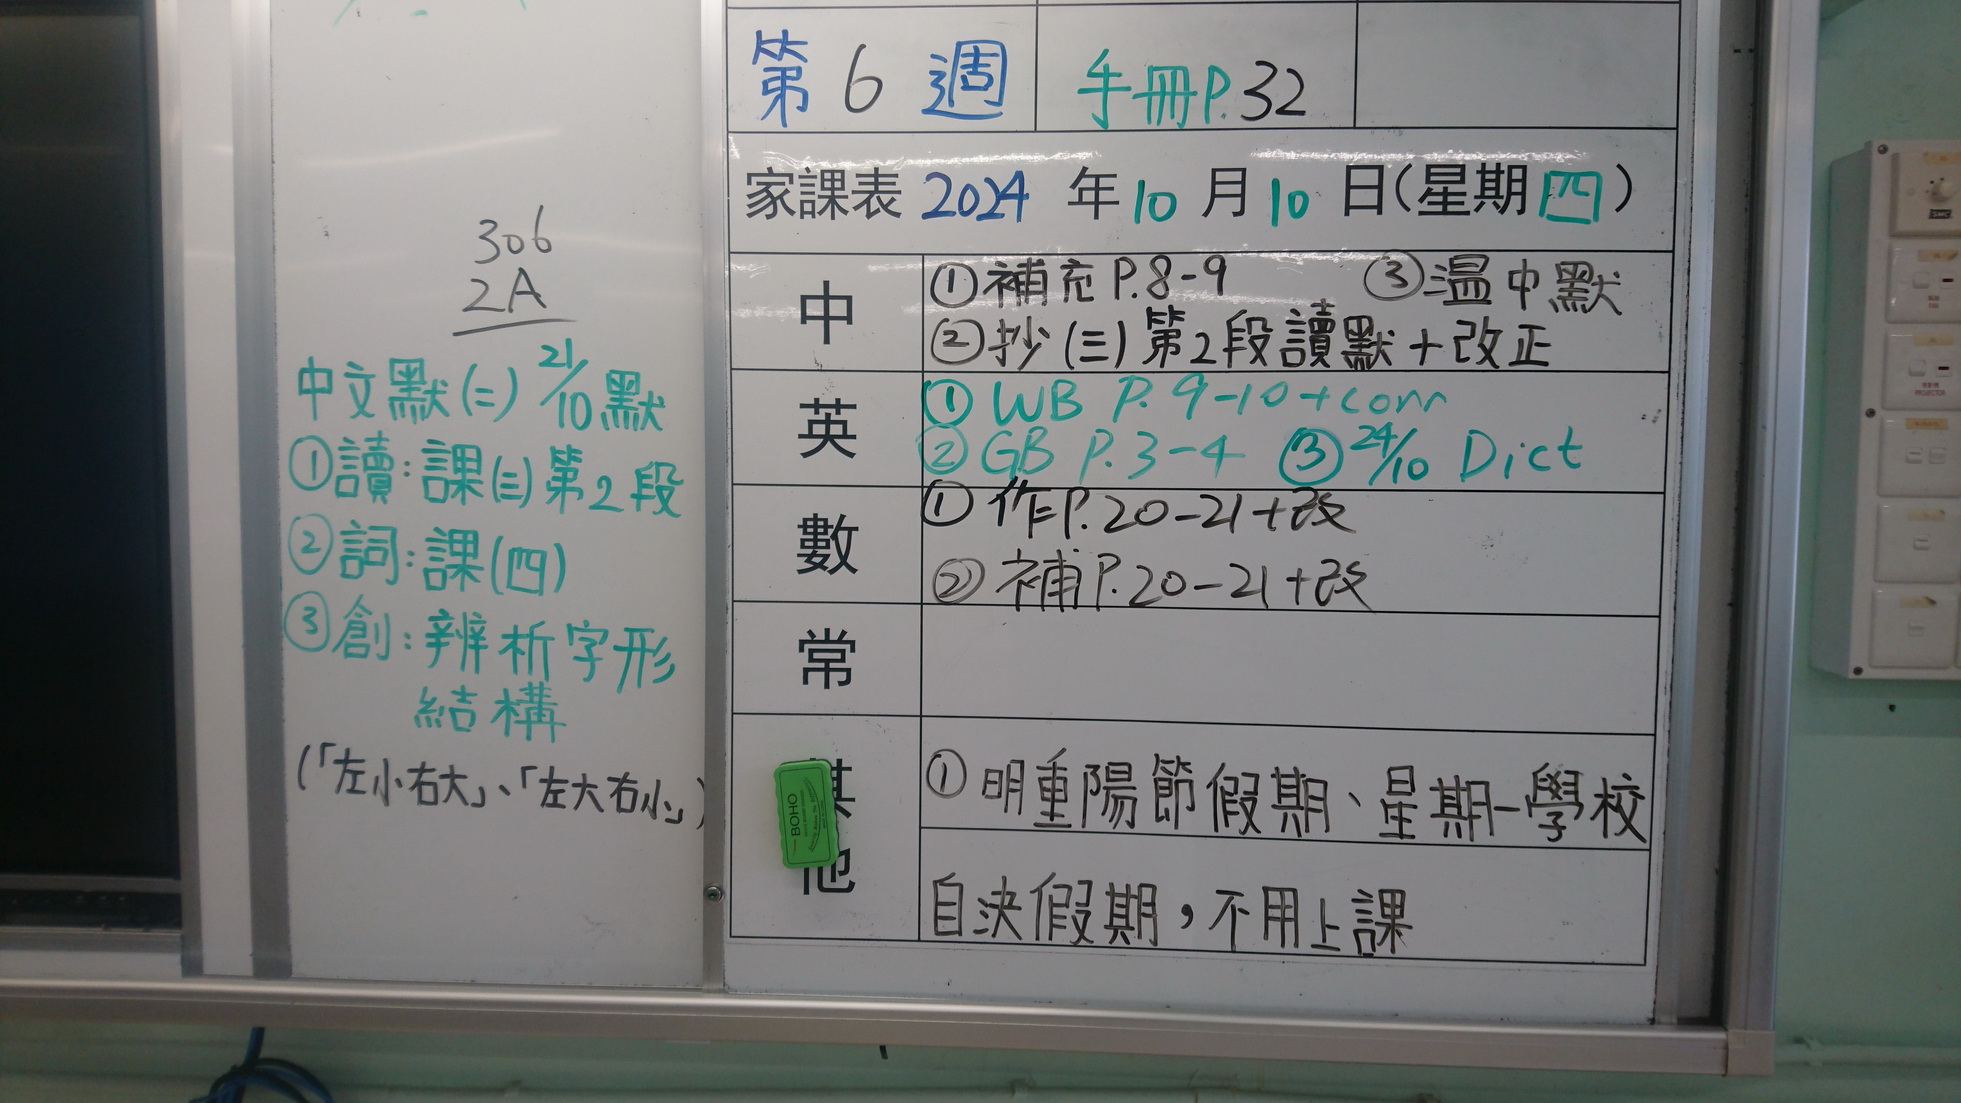 306
2A
中文默(二) 21/10默
①讀:課(三)第2段
②詞:課(四)
③創:辨析字形
結構
(「左小右大」、「左大右小」)
第6週 手冊P.32
家課表 2024 年 10 月 10 日(星期四)
中 ①補充P.8-9 ③温中默
②抄(三)第2段讀默+改正
英 ① WB P.9-10+corr
② GB P.3-4 ③ 24/10 Dict
數 ① 作P.20-21+改
② 補P.20-21+改
常
其他 ① 明重陽節假期、星期一學校
自決假期,不用上課
BOHO